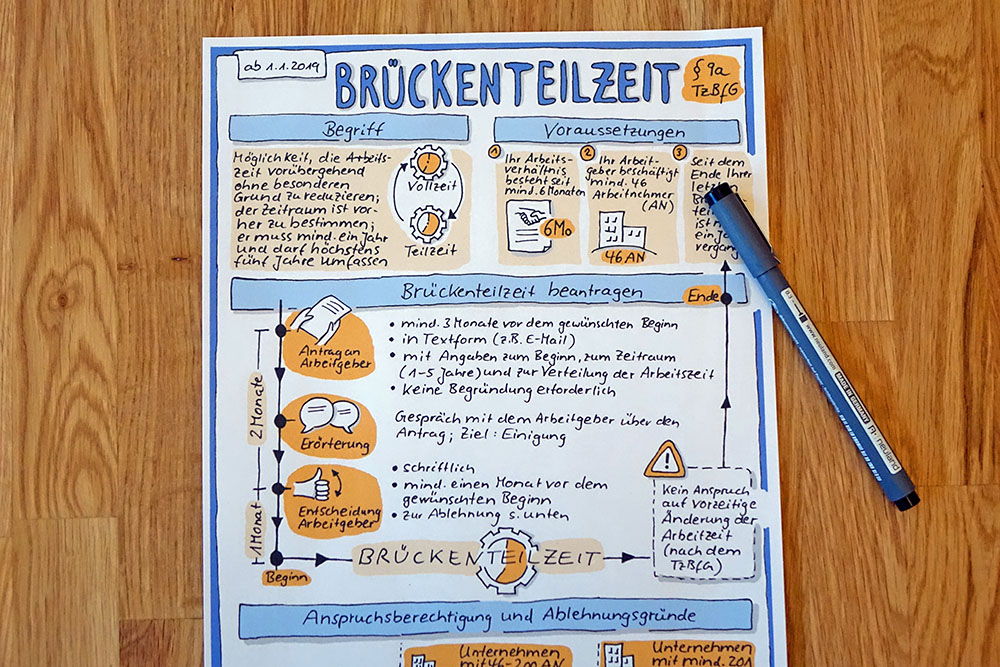 ab 1.1.2019
BRÜCKENTEILZEIT
§ 9a
TzBfG
Begriff
Möglichkeit, die Arbeits-
zeit vorübergehend
ohne besonderen
Grund zu reduzieren;
der Zeitraum ist vor-
her zu bestimmen;
er muss mind. ein Jahr
und darf höchstens
fünf Jahre umfassen
Vollzeit
Teilzeit
Voraussetzungen
1
Ihr Arbeits-
verhältnis
besteht seit
mind. 6 Monaten
6Mo
2
Ihr Arbeit-
geber beschäftigt
mind. 46
Arbeitnehmer
(AN)
46 AN
3
Seit dem
Ende Ihrer
Brückenteilzeit beantragen
Ende
2 Monate
1 Monat
Antrag an
Arbeitgeber
• mind. 3 Monate vor dem gewünschten Beginn
• in Textform (z.B. E-Mail)
• mit Angaben zum Beginn, zum Zeitraum
(1-5 Jahre) und zur Verteilung der Arbeitszeit
• keine Begründung erforderlich
Erörterung
Gespräch mit dem Arbeitgeber über den
Antrag; Ziel: Einigung
Entscheidung
Arbeitgeber
• schriftlich
• mind. einen Monat vor dem
gewünschten Beginn
• zur Ablehnung s. unten
Beginn
BRÜCKENTEILZEIT
Kein Anspruch
auf vorzeitige
Änderung der
Arbeitzeit
(nach dem
TzBfG)
Anspruchsberechtigung und Ablehnungsgründe
Unternehmen
mit 46-200 AN
Unternehmen
mit mind. 201
0.5
www.neuland.com
MADE IN GERMANY
neuland